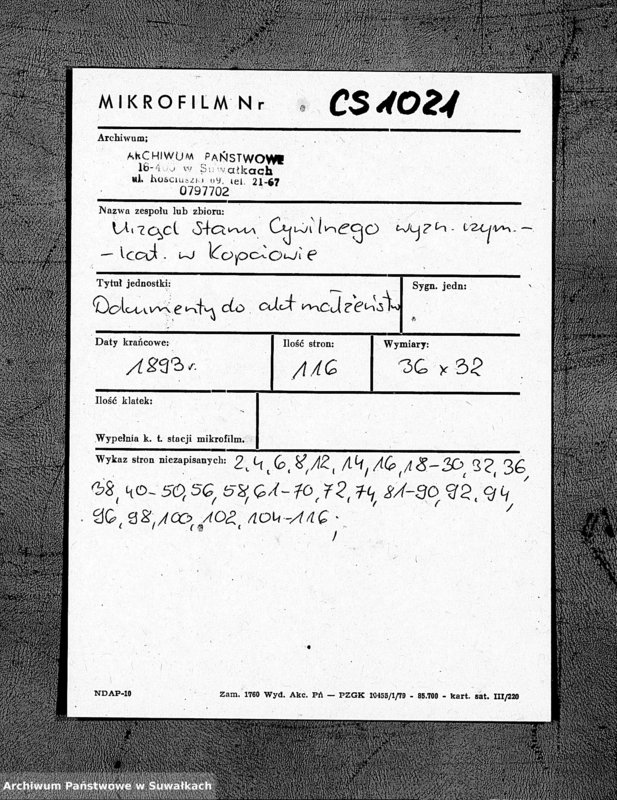 MIKROFILM Nr CS 1021
Archiwum;
ARCHIWUM PAŃSTWOWE
16-400 w Suwałkach
ul. Kościuszki 69, tel. 21-67
0797702
Nazwa zespołu lub zbioru:
Urząd Stanu Cywilnego wyzn. rzym.-
-kat. w Kopciowie
Tytuł jednostki:
Sygn. jedn:
Dokumenty do akt małżeństw
Daty krańcowe:
Ilość stron:
Wymiary:
1893 r.
116
36 x 32
Ilość klatek:
Wypełnia k. t. stacji mikrofilm.
Wykaz stron niezapisanych: 2, 4, 6, 8, 12, 14, 16, 18-30, 32, 36,
38, 40-50, 56, 58, 61-70, 72, 74, 81-90, 92, 94,
96, 98, 100, 102, 104-116;
NDAP-10
Zam. 1760 Wyd. Akc. Pń — PZGK 10455/1/79 - 85.700 - kart. sat. III/220
Archiwum Państwowe w Suwałkach